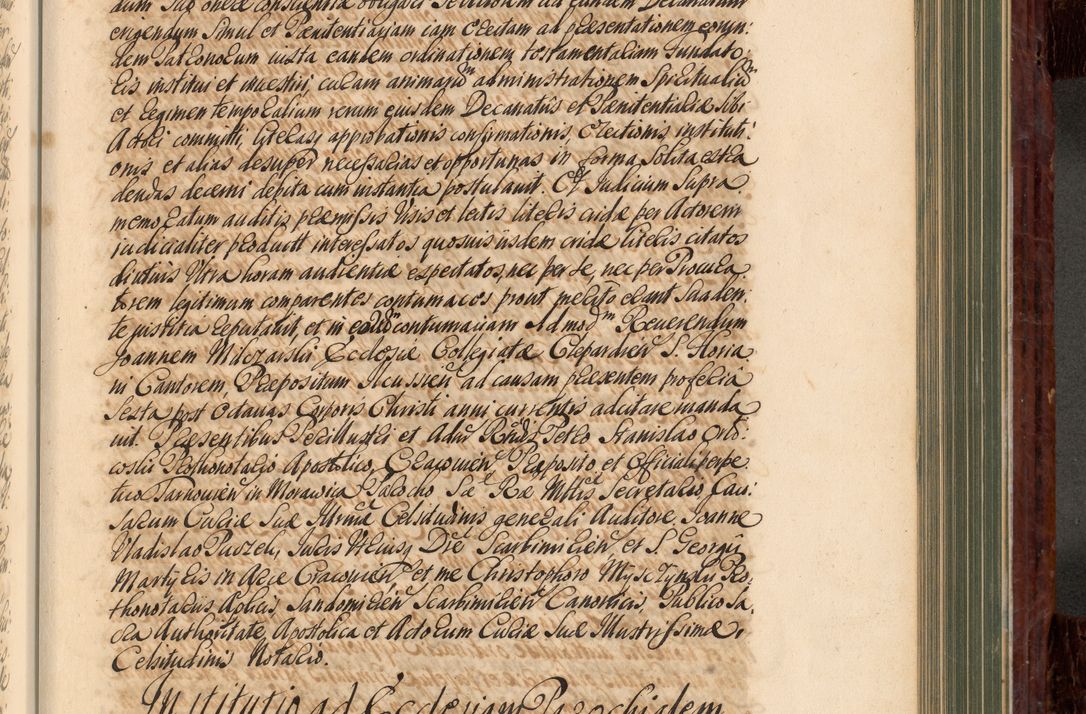 dum sub onere conscientiæ obligari Seniorem ad eundem Decanatum
erigendum simul et Pœnitentiariam iam erectam ad præsentationem eorun:
dem Patronorum iuxta eandem ordinationem testamentariam fundato
ris institui et inuestiri, curam animarũ administrationem Spiritualiũ
et regimen temporalium rerum eiusdem Decanatus et Pænitentiariæ sibi
Actori committi, literasq approbationis confirmationis, erectionis instituti:
onis et alias desuper necessarias et opportunas in forma solita extra
dendas decerni debita cum instantia postulauit. Et Judicium Supra
memoratum auditis præmissis Visis et lectis literis cridæ per Actorem
iudicialiter product interessatos quosuis iisdem cridæ literis citatos
diutius Vltra horam audientiæ expectatos, nec per se, nec per Procura
torem legitimum comparentes contumaces prout merito erant suaden
te iustitia reputauit, et in eorũ contumaciam Admodm Reuerendum
Joannem Milczarski Ecclesiæ Collegiatæ Clepardien S. Floria
ni Cantorem, Præpositum Ilcussien ad causam præsentem pro feria
sexta post Octauas Corporis Christi anni currentis adcitare manda
uit. Præsentibus Perillustri et Adm Rndis Petro Stanislao Orło
coski Prothonotario Apostolico, Cracouien Præposito et Officiali perpe
tuo Tarnouien in Morawica Parocho Sæ Ræ Mttis Secretario, Cau:
sarum Curiæ Suæ Illrmæ Celsitudinis generali Auditore, Joanne
Vladislao Puszet, Juris Vtriusq Dre Scarbimirien et S. Georgii
Martyris in Arce Cracouien et me Christophoro Mysczynski Pro
thonotarius Aplicis Sandomirien Scarbimirien Canonicis, Publico Sa
cra Authoritate, Apostolica et Actorum Curiæ Suæ Illustrissimæ
Celsitudinis Notario.
Institutio ad Ecclesiam Parochialem